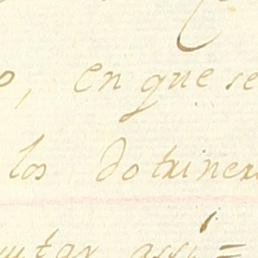 , en que se
los dotriner
utar assi =